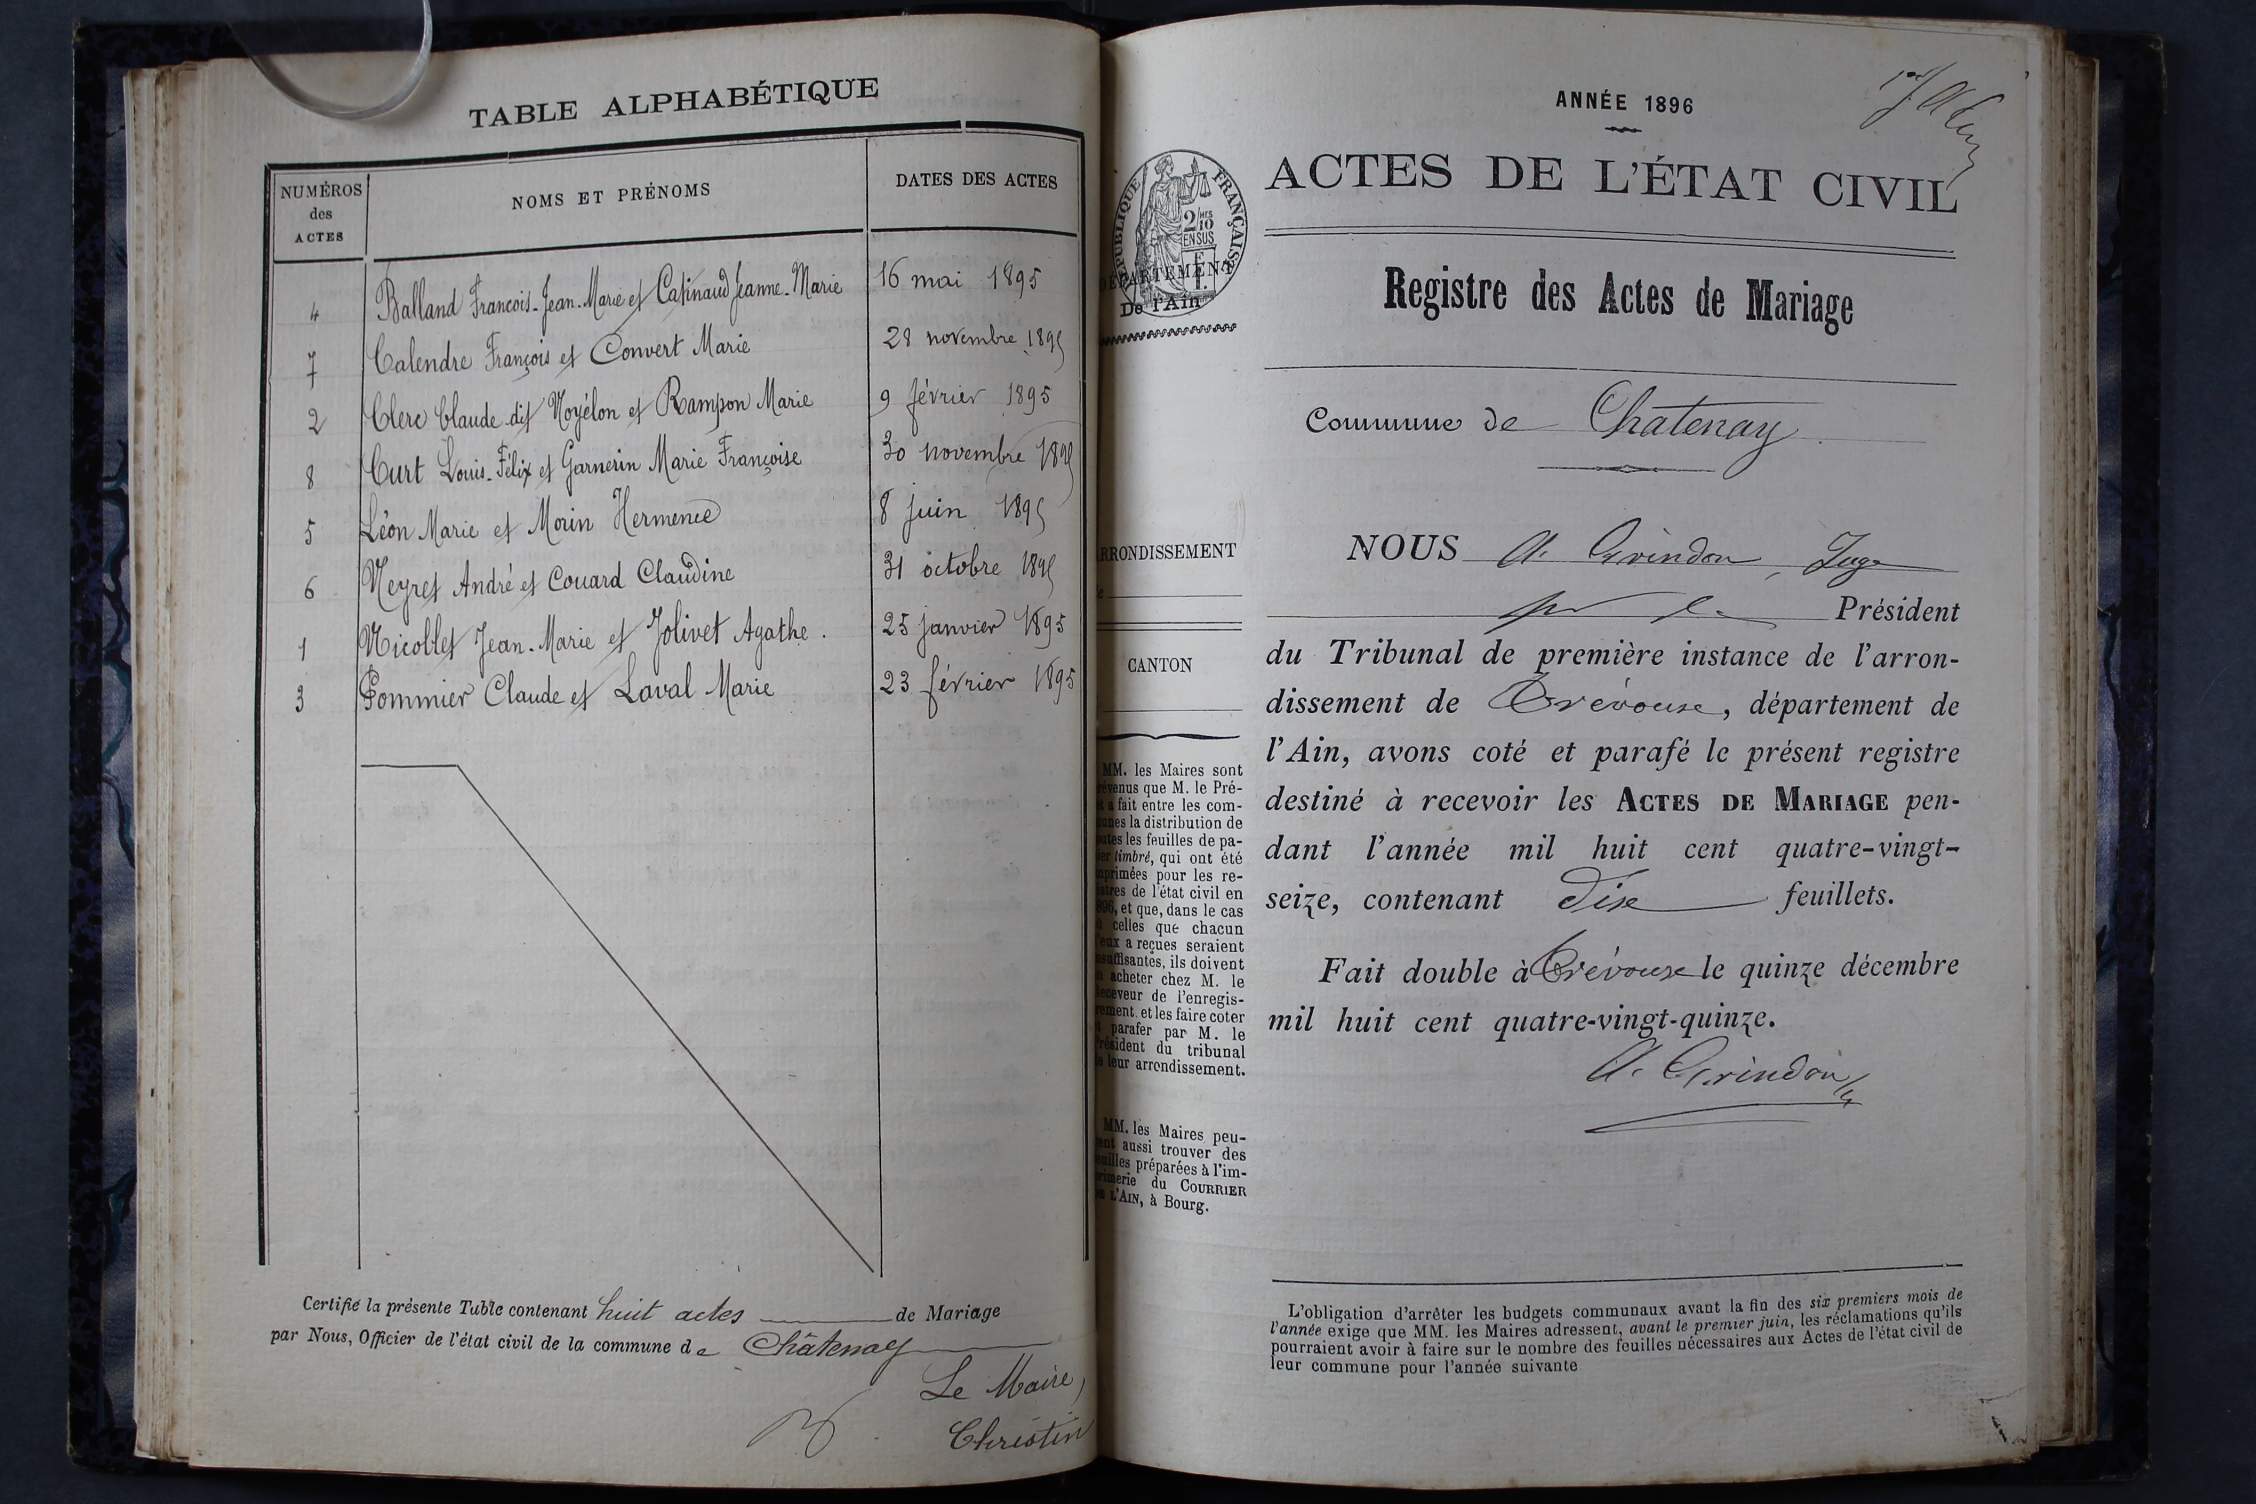 TABLE ALPHABÉTIQUE
NUMÉROS des ACTES
NOMS ET PRÉNOMS
DATES DES ACTES
4 Balland Francois-Jean-Marie et Catinaud Jeanne-Marie 16 mai 1895
7 Calendre François et Convert Marie 28 novembre 1895
2 Clerc Claude dit Noyélon et Rampon Marie 9 février 1895
8 Curt Louis-Félix et Garnerin Marie Françoise 30 novembre 1895
5 Léon Marie et Morin Hermence 8 juin 1895
6 Neyret André et Couard Claudine 31 octobre 1895
1 Nicollet Jean-Marie et Jolivet Agathe. 25 janvier 1895
3 Pommier Claude et Laval Marie 23 février 1895
Certifié la présente Table contenant huit actes de Mariage
par Nous, Officier de l'état civil de la commune de Châtenay
Le Maire,
Christin
ANNÉE 1896
ACTES DE L'ÉTAT CIVIL
RÉPUBLIQUE FRANÇAISE
2/10
EN SUS
DÉPARTEMENT
De l'Ain
Registre des Actes de Mariage
Commune de Chatenay
ARRONDISSEMENT
CANTON
NOUS A. Grindon, Juge
pr le Président
du Tribunal de première instance de l'arron-
dissement de Trévoux, département de
l'Ain, avons coté et parafé le présent registre
destiné à recevoir les ACTES DE MARIAGE pen-
dant l'année mil huit cent quatre-vingt-
seize, contenant dix feuillets.
Fait double à Trévoux le quinze décembre
mil huit cent quatre-vingt-quinze.
A. Grindon
MM. les Maires sont
prévenus que M. le Pré-
fet a fait entre les com-
munes la distribution de
toutes les feuilles de pa-
pier timbré, qui ont été
imprimées pour les re-
gistres de l'état civil en
1896, et que, dans le cas
où celles que chacun
d'eux a reçues seraient
insuffisantes, ils doivent
en acheter chez M. le
Receveur de l'enregis-
trement et les faire coter
et parafer par M. le
Président du tribunal
de leur arrondissement.
MM. les Maires peu-
vent aussi trouver des
feuilles préparées à l'im-
primerie du COURRIER
DE L'AIN, à Bourg.
L'obligation d'arrêter les budgets communaux avant la fin des six premiers mois de
l'année exige que MM. les Maires adressent, avant le premier juin, les réclamations qu'ils
pourraient avoir à faire sur le nombre des feuilles nécessaires aux Actes de l'état civil de
leur commune pour l'année suivante